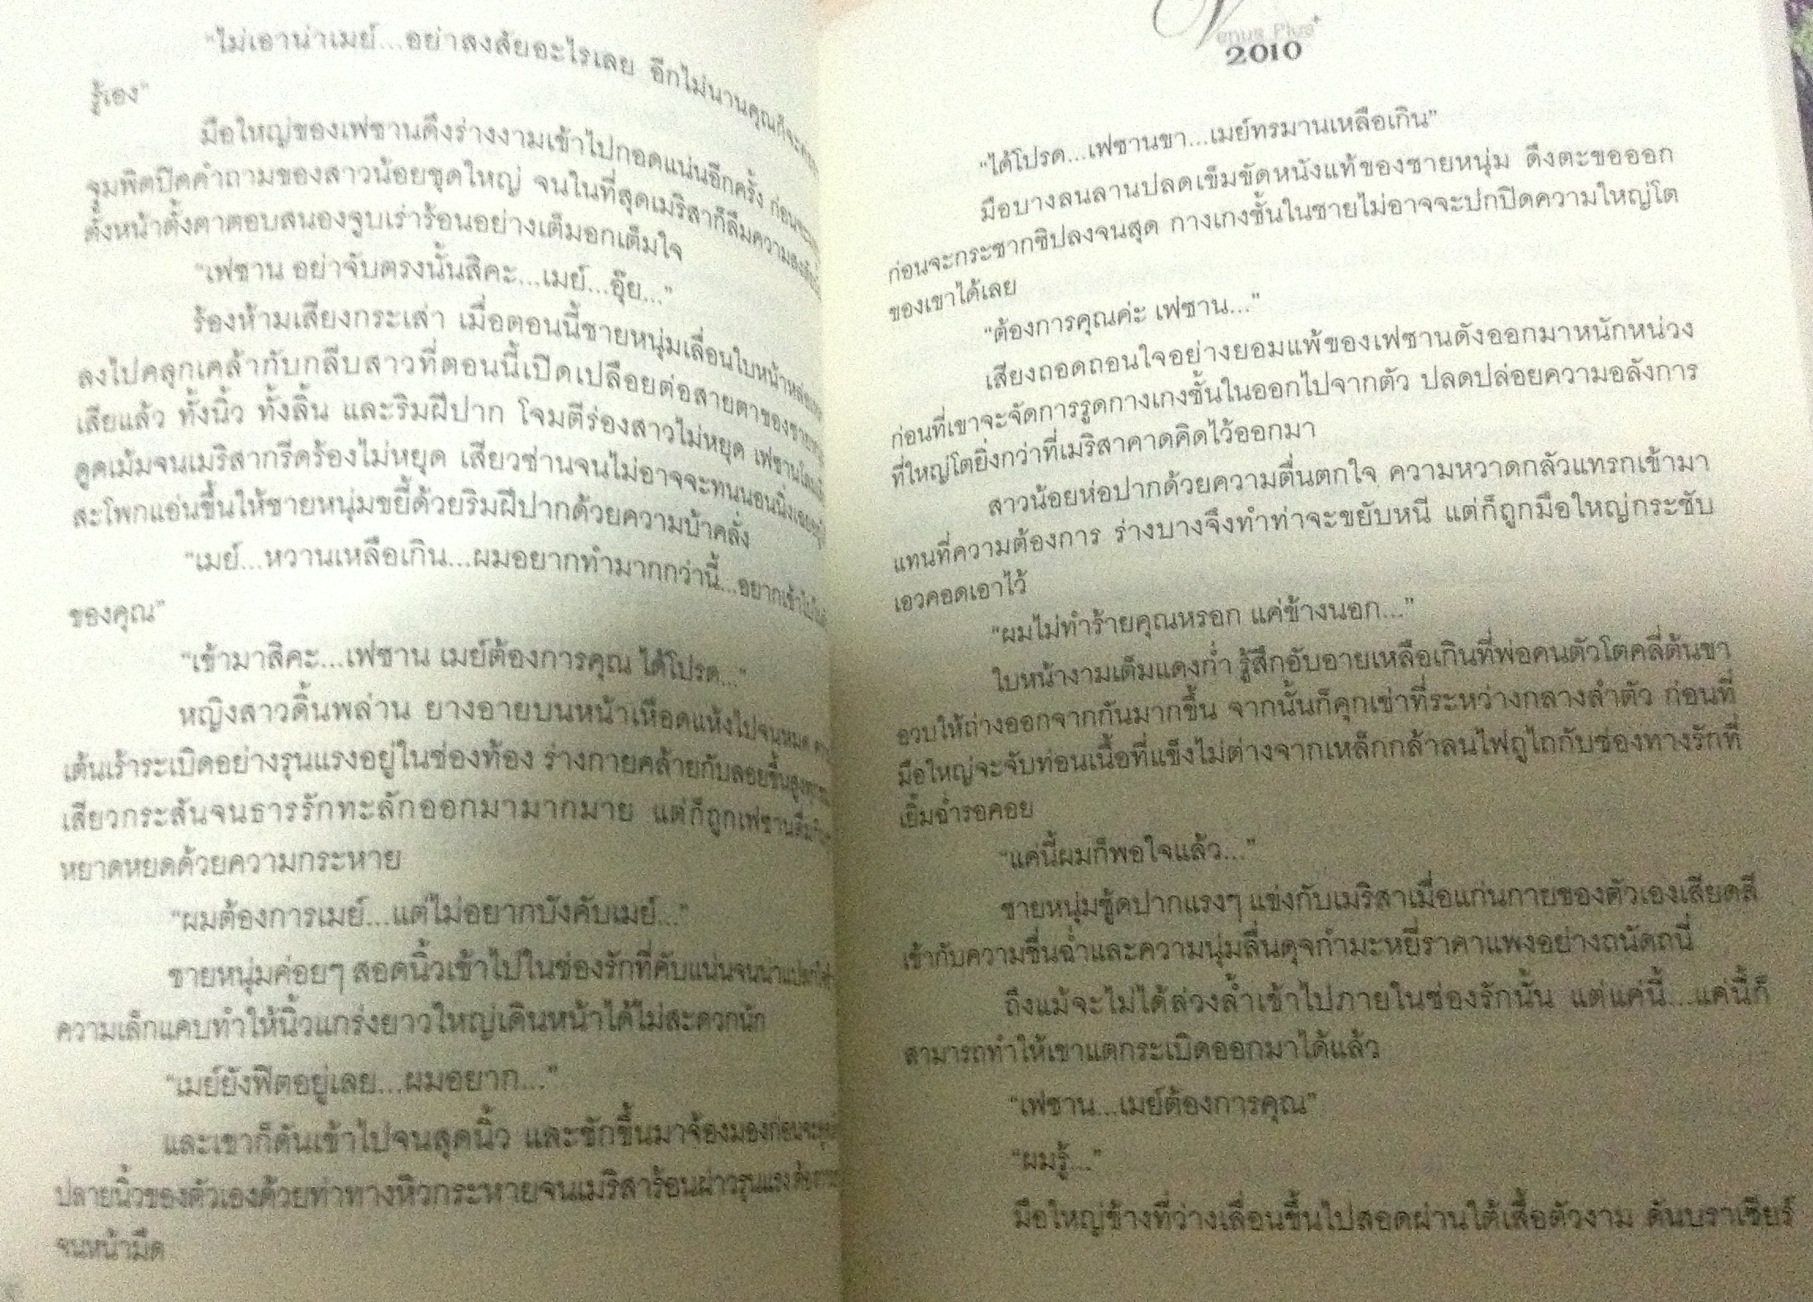 "ไม่เอาน่าเมย์...อย่าสงสัยอะไรเลย อีกไม่นานคุณก็จะ
รู้เอง"
มือใหญ่ของเฟซานดึงร่างงามเข้าไปกอดแน่นอีกครั้ง
จุมพิตปิดคำถามของสาวน้อยชุดใหญ่ จนในที่สุดเมริสาก็ลืมความ
ตั้งหน้าตั้งตาตอบสนองจูบเร่าร้อนอย่างเต็มอกเต็มใจ
"เฟซาน อย่าจับตรงนั้นสิคะ...เมย์...อุ๊ย..."
ร้องห้ามเสียงกระเส่า เมื่อตอนนี้ชายหนุ่มเลื่อนใบหน้า
ลงไปคลุกเคล้ากับกลีบสาวที่ตอนนี้เปิดเปลือยต่อสายตาของ
เสียแล้ว ทั้งนิ้ว ทั้งลิ้น และริมฝีปาก โจมตีร่องสาวไม่หยุด
ดูดเม้มจนเมริสากรีดร้องไม่หยุด เสียวซ่านจนไม่อาจจะทนนอนนิ่ง
สะโพกแอ่นขึ้นให้ชายหนุ่มขยี้ด้วยริมฝีปากด้วยความบ้าคลั่ง
"เมย์...หวานเหลือเกิน...ผมอยากทำมากกว่านี้...อยากเข้าไป
ของคุณ"
"เข้ามาสิคะ...เฟซาน เมย์ต้องการคุณ ได้โปรด..."
หญิงสาวดิ้นพล่าน ยางอายบนหน้าเหือดแห้งไปจนหมด
เต้นเร้าระเบิดอย่างรุนแรงอยู่ในช่องท้อง ร่างกายคล้ายกับลอยขึ้นสูง
เสียวกระสันจนธารรักทะลักออกมามากมาย แต่ก็ถูกเฟซานดื่ม
หยาดหยดด้วยความกระหาย
"ผมต้องการเมย์...แต่ไม่อยากบังคับเมย์..."
ชายหนุ่มค่อยๆ สอดนิ้วเข้าไปในช่องรักที่คับแน่นจนน่า
ความเล็กแคบทำให้นิ้วแกร่งยาวใหญ่เดินหน้าได้ไม่สะดวกนัก
"เมย์ยังฟิตอยู่เลย...ผมอยาก..."
และเขาก็ดันเข้าไปจนสุดนิ้ว และชักขึ้นมาจ้องมองก่อนจะ
ปลายนิ้วของตัวเองด้วยท่าทางหิวกระหายจนเมริสาร้อนผ่าวรุนแรง
จนหน้ามืด
Venus Plus+
2010
"ได้โปรด...เฟซานขา...เมย์ทรมานเหลือเกิน"
มือบางลนลานปลดเข็มขัดหนังแท้ของชายหนุ่ม ดึงตะขอออก
ก่อนจะกระชากซิปลงจนสุด กางเกงชั้นในชายไม่อาจจะปกปิดความใหญ่โต
ของเขาได้เลย
"ต้องการคุณค่ะ เฟซาน..."
เสียงถอดถอนใจอย่างยอมแพ้ของเฟซานดังออกมาหนักหน่วง
ก่อนที่เขาจะจัดการรูดกางเกงชั้นในออกไปจากตัว ปลดปล่อยความอลังการ
ที่ใหญ่โตยิ่งกว่าที่เมริสาคาดคิดไว้ออกมา
สาวน้อยห่อปากด้วยความตื่นตกใจ ความหวาดกลัวแทรกเข้ามา
แทนที่ความต้องการ ร่างบางจึงทำท่าจะขยับหนี แต่ก็ถูกมือใหญ่กระชับ
เอวคอดเอาไว้
"ผมไม่ทำร้ายคุณหรอก แค่ข้างนอก..."
ใบหน้างามเต็มแดงก่ำ รู้สึกอับอายเหลือเกินที่พ่อคนตัวโตคลี่ต้นขา
อวบให้ถ่างออกจากกันมากขึ้น จากนั้นก็คุกเข่าที่ระหว่างกลางลำตัว ก่อนที่
มือใหญ่จะจับท่อนเนื้อที่แข็งไม่ต่างจากเหล็กกล้าลนไฟถูไถกับช่องทางรักที่
เยิ้มฉ่ำรอคอย
"แค่นี้ผมก็พอใจแล้ว..."
ชายหนุ่มซู้ดปากแรงๆ แข่งกับเมริสาเมื่อแก่นกายของตัวเองเสียดสี
เข้ากับความชื่นฉ่ำและความนุ่มลื่นดุจกำมะหยี่ราคาแพงอย่างถนัดถนี่
ถึงแม้จะไม่ได้ล่วงล้ำเข้าไปภายในช่องรักนั้น แต่แค่นี้...แค่นี้ก็
สามารถทำให้เขาแตกระเบิดออกมาได้แล้ว
"เฟซาน...เมย์ต้องการคุณ"
"ผมรู้..."
มือใหญ่ข้างที่ว่างเลื่อนขึ้นไปสอดผ่านใต้เสื้อตัวงาม ดันบราเซียร์